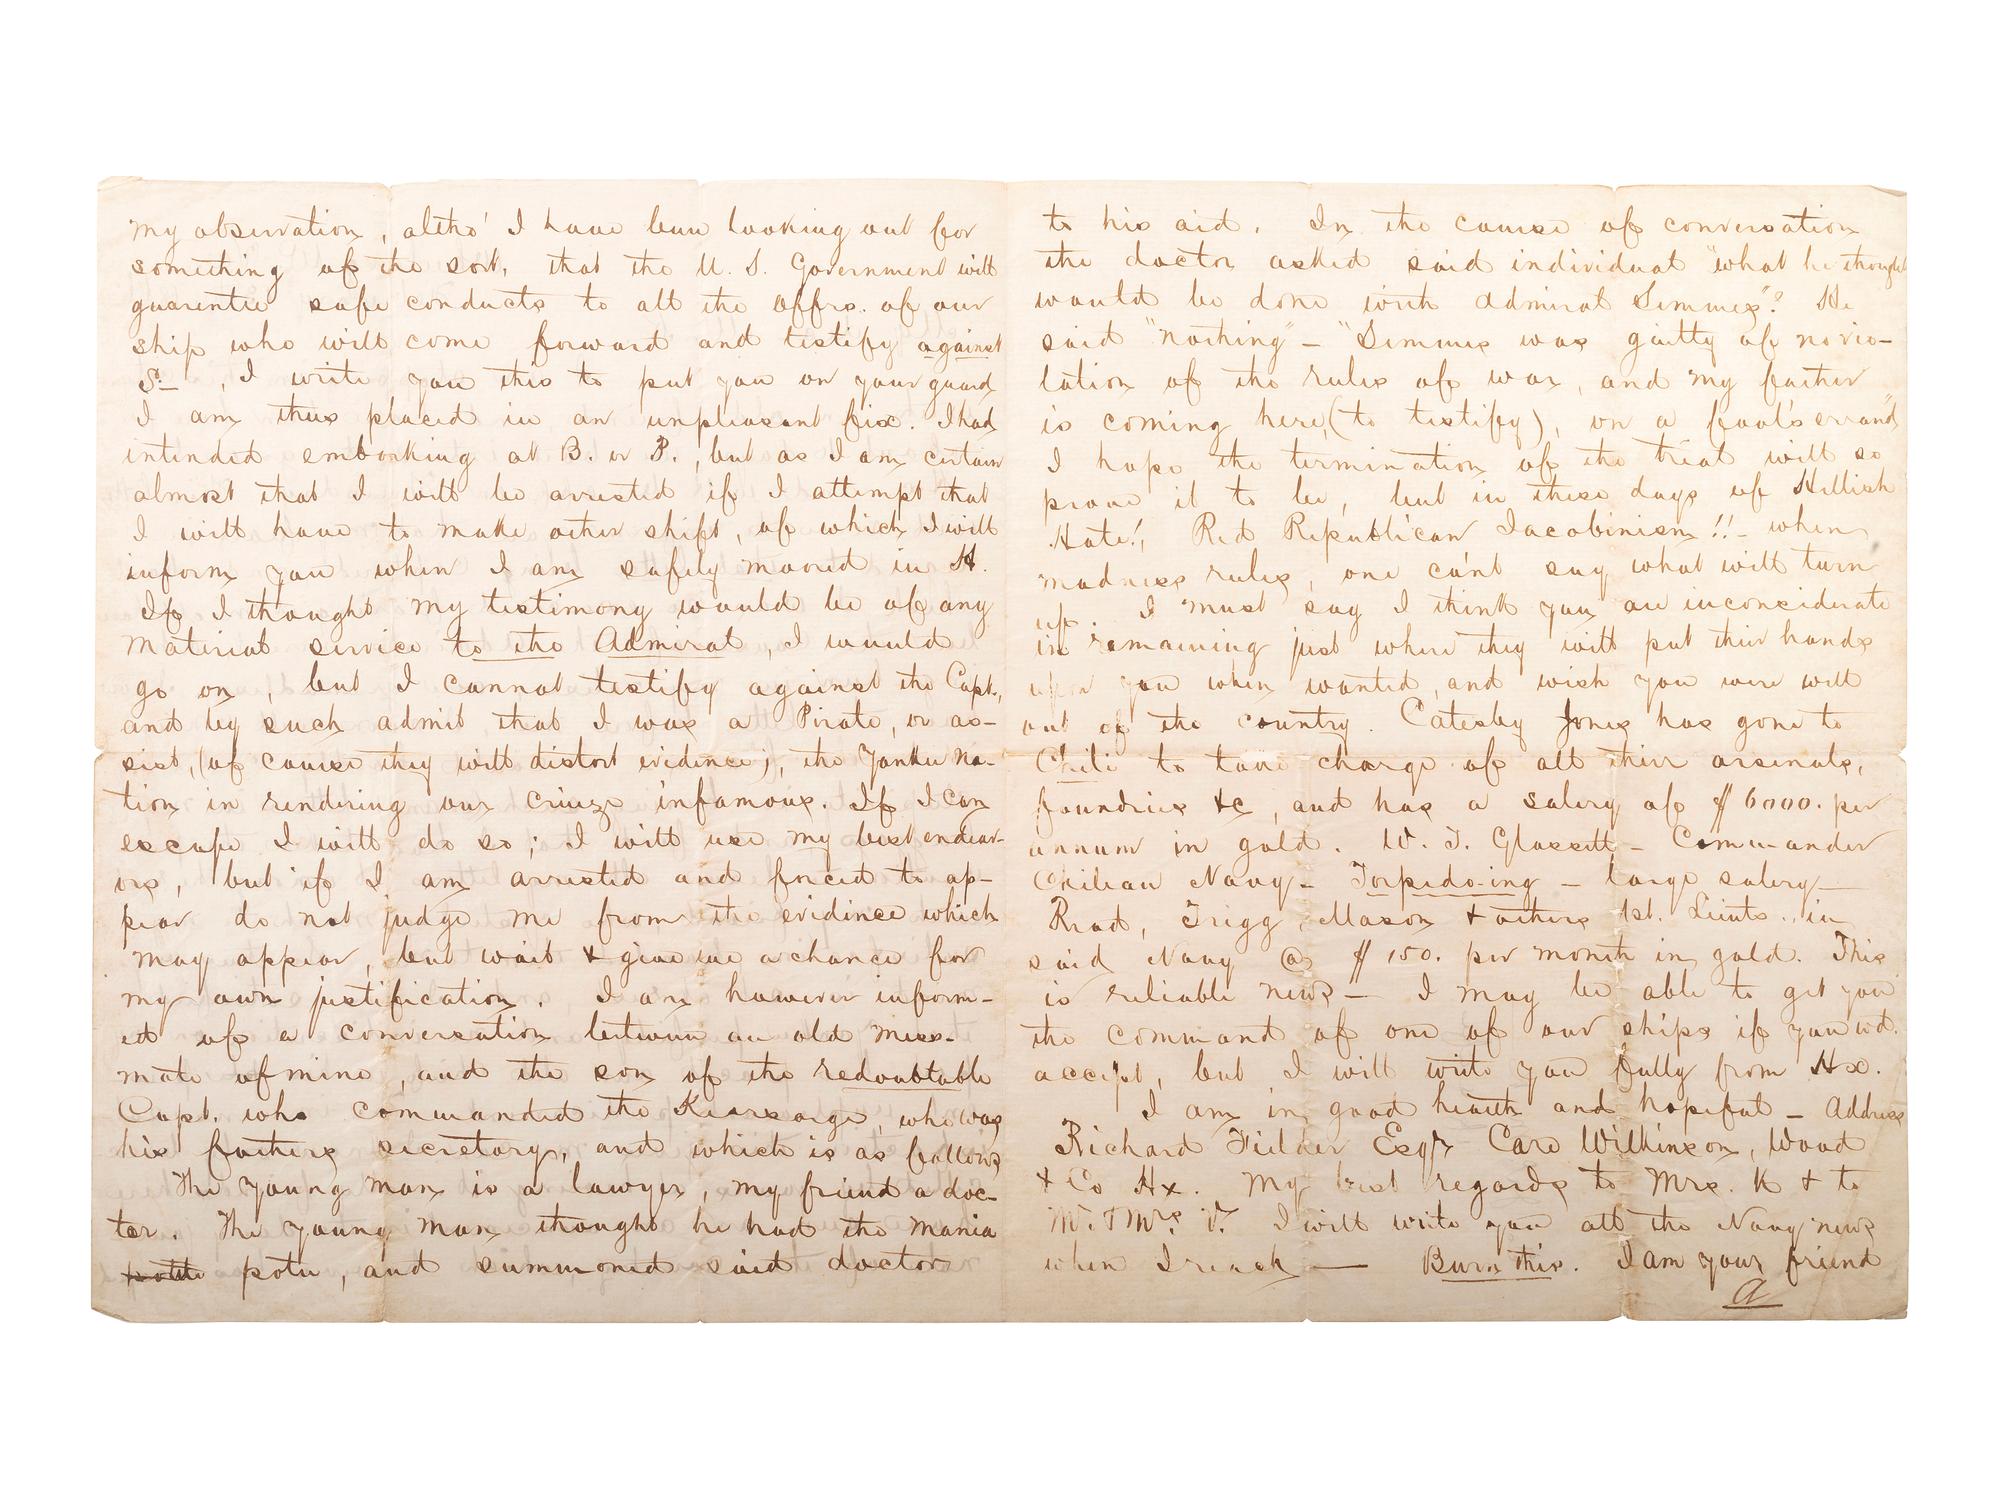 my observation, altho' I have been looking out for
something of the sort, that the U. S. Government will
guarentee safe conducts to all the offrs. of our
ship who will come forward and testify against
S— , I write you this to put you on your guard
I am thus placed in an unpleasant fix. I had
intended embarking at B. or P., but as I am certain
almost that I will be arrested if I attempt that
I will have to make other shift, of which I will
inform you when I am safely moored in H.
If I thought my testimony would be of any
material service to the Admiral, I would
go on, but I cannot testify against the Capt.,
and by such admit that I was a Pirate, or as-
sist, (of course they will distort evidence), the Yankee Na-
tion in rendering our cruize infamous. If I can
escape I will do so; I will use my best endeav-
ors, but if I am arrested and forced to ap-
pear do not judge me from the evidence which
may appear, but wait & give me a chance for
my own justification. I am however inform-
ed of a conversation between an old mess-
mate of mine, and the son of the redoubtable
Capt. who commanded the Kearsarge, who was
his fathers secretary, and which is as follows
The young man is a lawyer, my friend a doc-
tor. The young man thought he had the mania
potu, and summoned said doctor
to his aid. In the course of conversation
the doctor asked said individual "what he thought
would be done with Admiral Semmes"? He
said "nothing" – "Semmes was guilty of no vio-
lation of the rules of war, and my father
is coming here, (to testify), on a fool's errand"
I hope the termination of the trial will so
prove it to be, but in these days of Hellish
Hate!, Red Republican Jacobinism!! – when
madness rules, one can't say what will turn
up. I must say I think you are inconsiderate
in remaining just where they will put their hands
upon you when wanted, and wish you were well
out of the country. Catesby Jones has gone to
Chili to take charge of all their arsenals,
foundries &c, and has a salery of $6000. per
annum in gold. W. J. Glassell – Commander
Chilean Navy – Torpedo-ing – large salery —
Read, Trigg, Mason & others 1st. Leuts. in
said Navy @ $150. per month in gold. This
is reliable news – I may be able to get you
the command of one of our ships if you wd.
accept, but I will write you fully from Hx.
I am in good health and hopeful – Address
Richard Fielder Esqr Care Wilkinson, Wood
& Co Hx. My best regards to Mrs. K & to
Mr. & Mrs V. I will write you all the Navy news
when I reach — Burn this. I am your friend
A